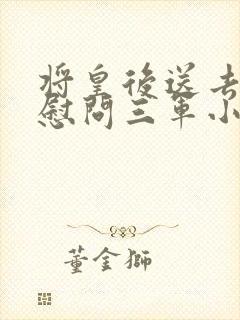 将皇後送去
慰問三軍小
董金獅